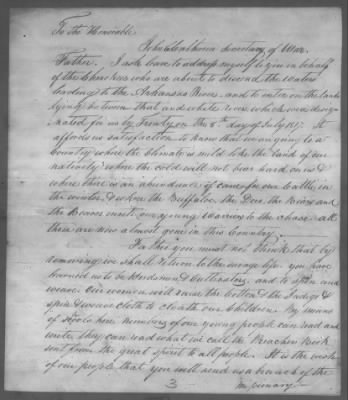 To the Honorable
John C Calhoun Secretary of War.
Father. I ask leave to address myself to you in behalf
of the Cherokees who are about to descend the waters
leading to the Arkansas River and to enter on the lands
lying between that and white river which was desig-
nated for us by Treaty on the 8th day of July 1817. It
affords us satisfaction to know that we are going to a
Country where the Climate is mild like the land of our
nativity where the cold will not bear hard on us &
where there is an abundance of cane for our Cattle in
the winter & where the Buffaloe, the Deer, the Bear and
the Beaver invite our young Warriors to the chase. all
these are now almost gone in this Country.
Father you must not think that by
removing we shall return to the savage life. you have
learned us to be Herdsmen & Cultivators, and to spin and
weave. Our women will raise the Cotton & the Indigo &
spin & weave cloth to cloath our Children. By means
of schools here numbers of our young people can read and
write, they can read what we call the Preachers Book
sent from the great spirit to all people. It is the wish
of our people that you will send us a branch of the
3
missionary